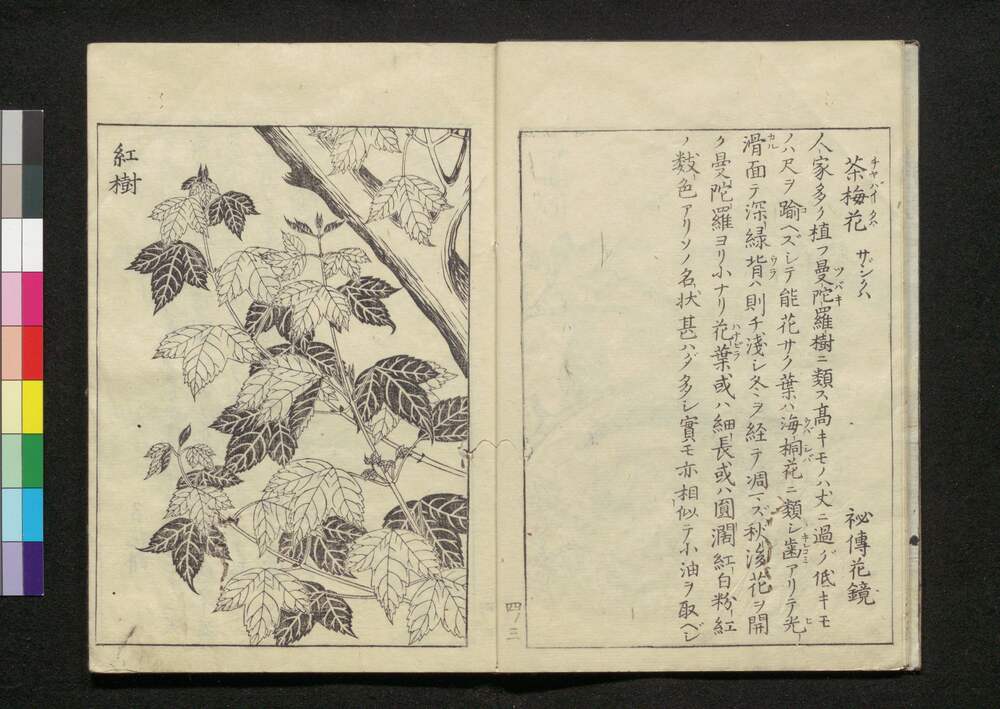 茶梅花 サザンクハ 祕傳花鏡
人家多ク植フ曼陀羅樹ニ類ス高キモノハ丈ニ過グ低キモ
ノハ尺ヲ踰ヘズシテ能花サク葉ハ海桐花ニ類シ歯アリテ光
滑面テ深緑背ハ則チ淺シ冬ヲ経テ凋マズ秋後花ヲ開
ク曼陀羅ヨリ小ナリ花葉或ハ細長或ハ圓濶紅白粉紅
ノ數色アリソノ名状甚ハダ多シ實モ亦相似テ小油ヲ取ベシ
紅樹
四ノ三